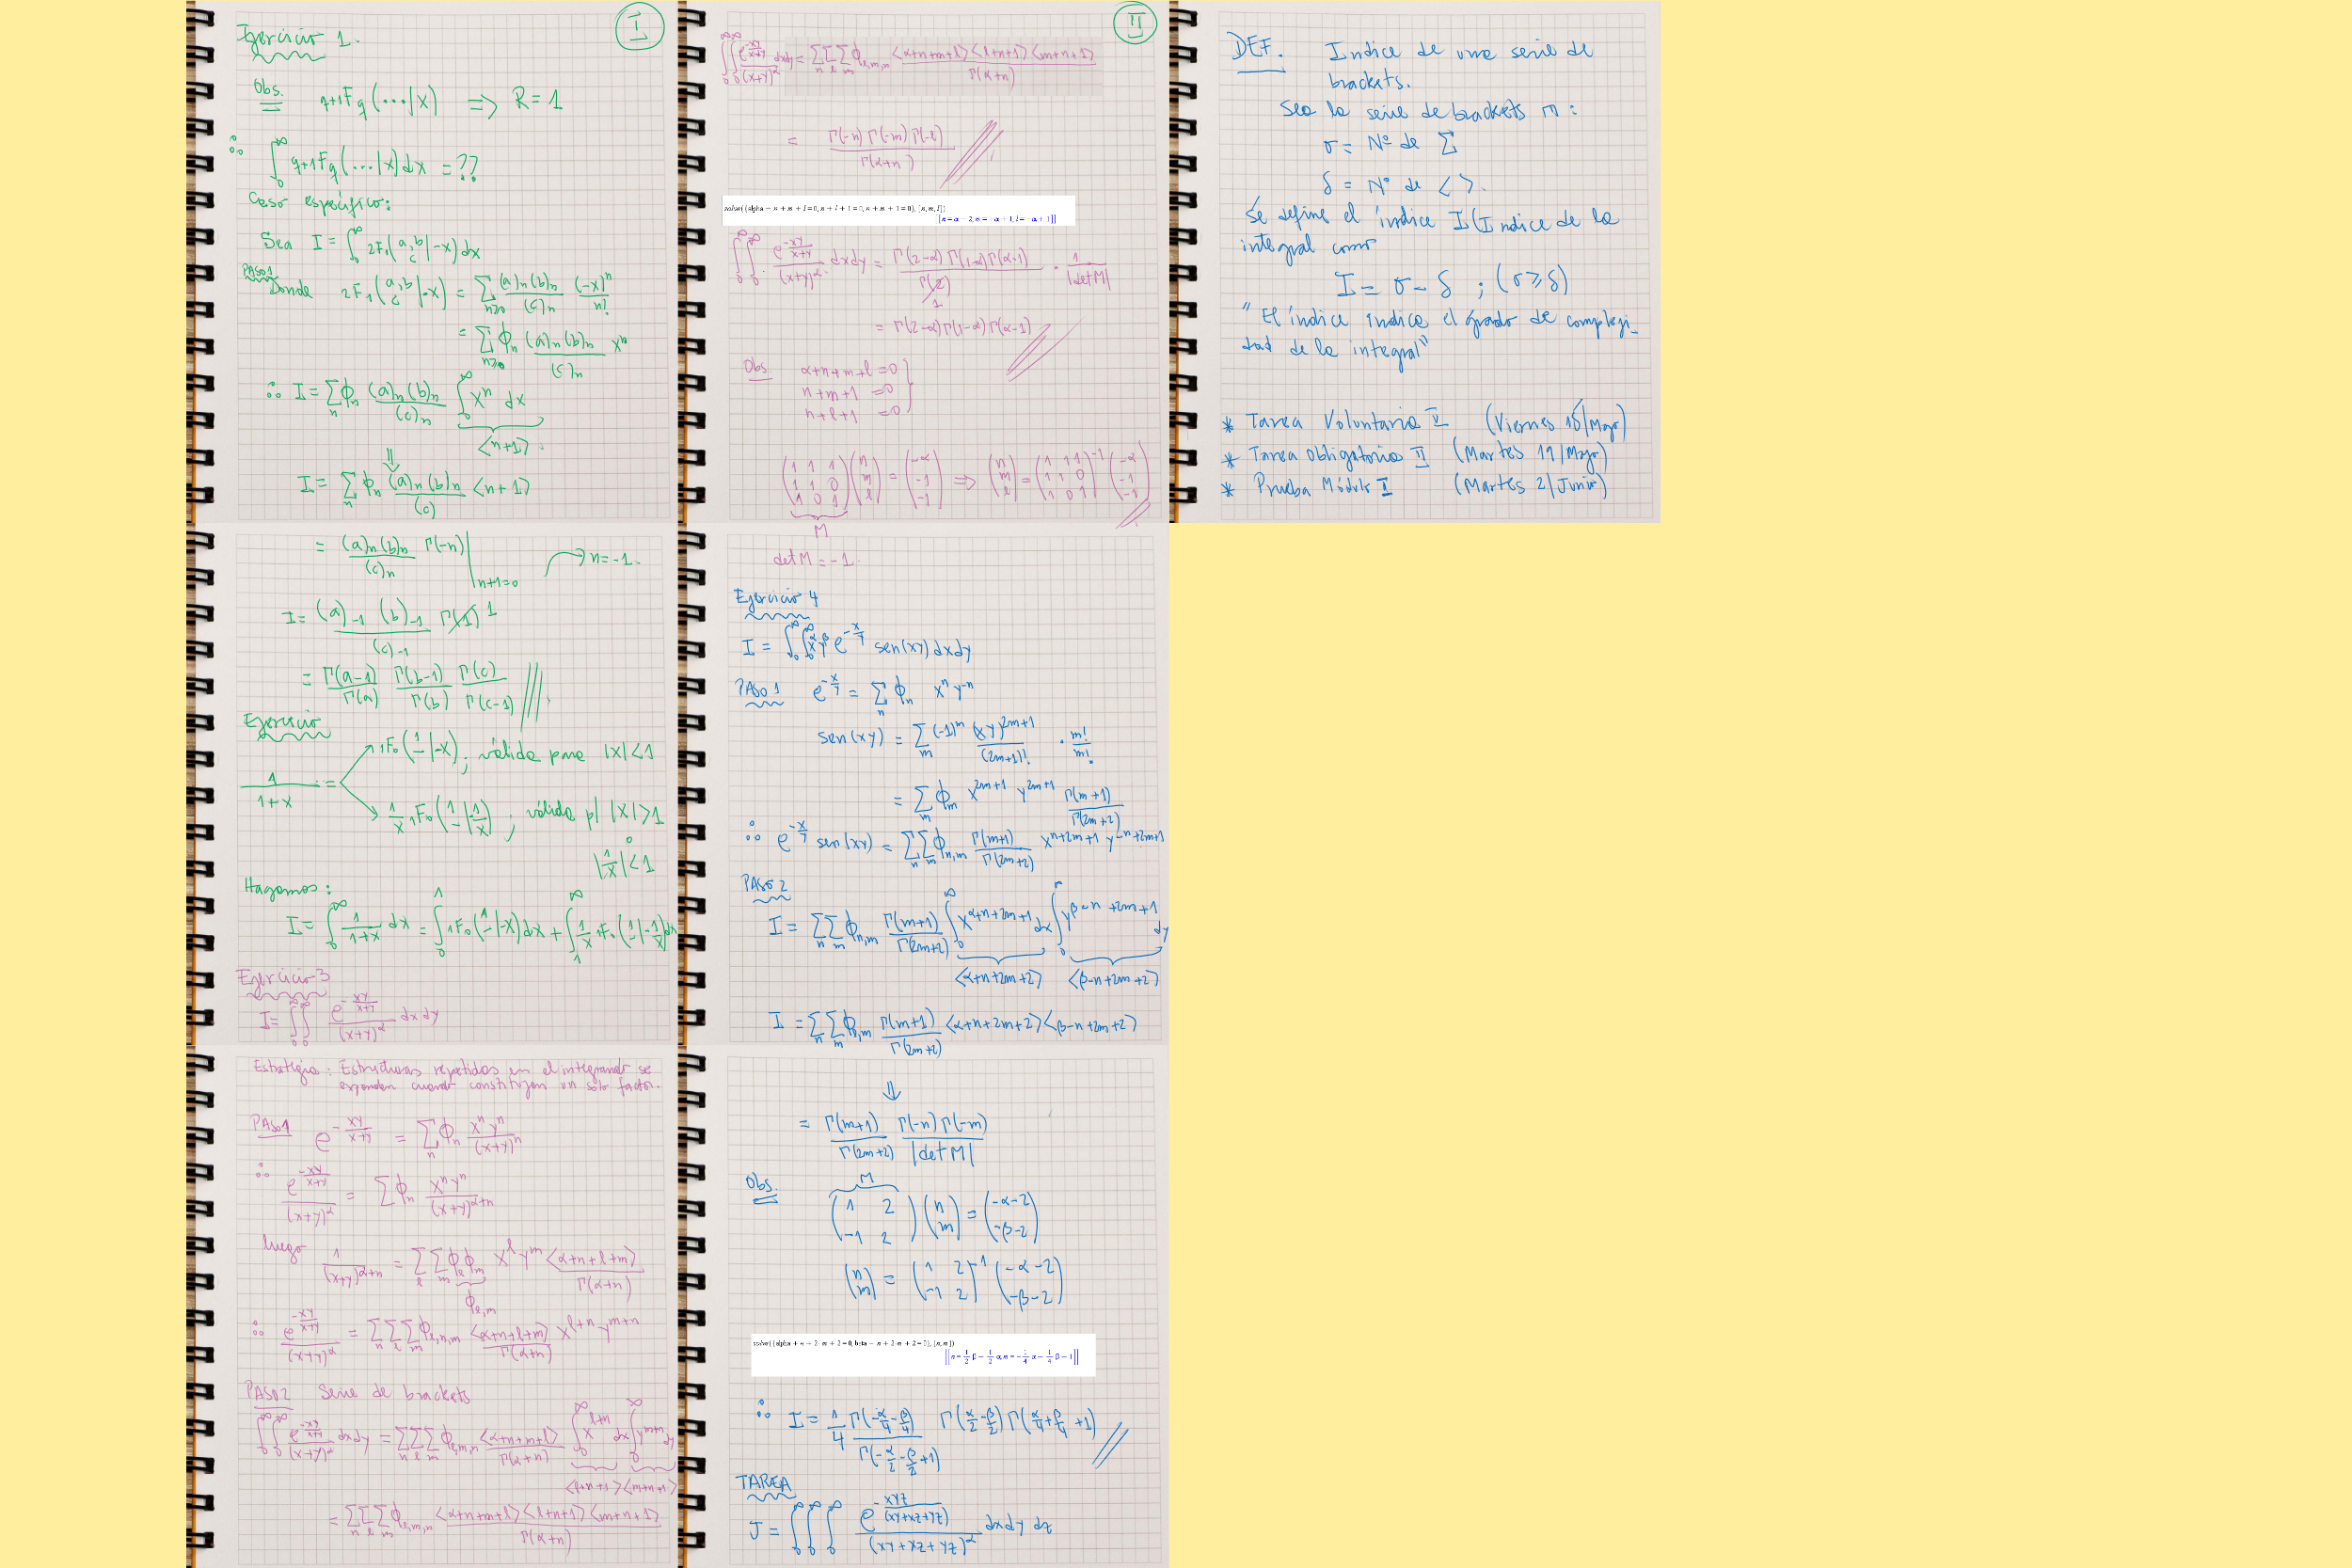 Ejercicio 1.
I
Obs. q+1Fq(...|x) ⟹ R = 1
∴ ∫₀^∞ q+1Fq(...|x) dx = ??
Caso específico:
Sea I = ∫₀^∞ 2F1(a,b; c | -x) dx
PASO 1
Donde 2F1(a,b; c | -x) = Σ_{n≥0} (a)n(b)n/(c)n (-x)^n/n!
= Σ_{n≥0} ϕn (a)n(b)n/(c)n x^n
∴ I = Σn ϕn (a)n(b)n/(c)n ∫₀^∞ x^n dx
<n+1>.
⇓
I = Σn ϕn (a)n(b)n/(c) <n+1>
= (a)n(b)n/(c)n Γ(-n) |n+1=0 → n=-1.
I = (a)-1 (b)-1/(c)-1 Γ(1) 1
= Γ(a-1)/Γ(a) Γ(b-1)/Γ(b) Γ(c)/Γ(c-1)
Ejercicio
1/(1+x) =
1F0(1; - | -x); válida para |x|<1
1/x 1F0(1; - | -1/x); válida p/ |x|>1
o
|1/x|<1
Hagamos:
I = ∫₀^∞ 1/(1+x) dx = ∫₀^1 1F0(1; - | -x) dx + ∫₁^∞ 1/x 1F0(1; - | -1/x) dx
Ejercicio 3
I = ∫₀^∞∫₀^∞ e^{-xy/(x+y)}/(x+y)^α dx dy
Estrategia: Estructuras repetidas en el integrando se
expanden cuando constituyen un sólo factor.
PASO 1 e^{-xy/(x+y)} = Σn ϕn x^n y^n/(x+y)^n
∴ e^{-xy/(x+y)}/(x+y)^α = Σ ϕn x^n y^n/(x+y)^{α+n}
luego 1/(x+y)^{α+n} = Σl Σm ϕl ϕm x^l y^m <α+n+l+m>/Γ(α+n)
ϕl,m
∴ e^{-xy/(x+y)}/(x+y)^α = Σn Σl Σm ϕl,n,m <α+n+l+m>/Γ(α+n) x^{l+n} y^{m+n}
PASO 2 Serie de brackets
∫₀^∞∫₀^∞ e^{-xy/(x+y)}/(x+y)^α dxdy = Σn Σl Σm ϕl,m,n <α+n+m+l>/Γ(α+n) ∫₀^∞ x^{l+n} dx ∫₀^∞ y^{m+n} dy
<l+n+1> <m+n+1>
= Σn Σl Σm ϕl,m,n <α+n+m+l><l+n+1><m+n+1>/Γ(α+n)
II
∫₀^∞∫₀^∞ e^{-xy/(x+y)}/(x+y)^α dxdy = Σn Σl Σm ϕl,m,n <α+n+m+l><l+n+1><m+n+1>/Γ(α+n)
= Γ(-n)Γ(-m)Γ(-l)/Γ(α+n)
solve({alpha + n + m + l = 0, n + l + 1 = 0, n + m + 1 = 0}, [n, m, l])
[[n = α - 2, m = -α + 1, l = -α + 1]]
∫₀^∞∫₀^∞ e^{-xy/(x+y)}/(x+y)^α dxdy = Γ(2-α)Γ(1-α)Γ(α-1)/Γ(2) · 1/|det M|
1
= Γ(2-α)Γ(1-α)Γ(α-1)
Obs. α+n+m+l = 0
n+m+1 = 0
n+l+1 = 0
(1 1 1; 1 1 0; 1 0 1)(n; m; l) = (-α; -1; -1) ⟹ (n; m; l) = (1 1 1; 1 1 0; 1 0 1)^-1 (-α; -1; -1)
M
det M = -1.
Ejercicio 4
I = ∫₀^∞∫₀^∞ x^α y^β e^{-x/y} sen(xy) dxdy
PASO 1 e^{-x/y} = Σn ϕn x^n y^-n
sen(xy) = Σm (-1)^m (xy)^{2m+1}/(2m+1)! · m!/m!
= Σm ϕm x^{2m+1} y^{2m+1} Γ(m+1)/Γ(2m+2)
∴ e^{-x/y} sen(xy) = Σn Σm ϕn,m Γ(m+1)/Γ(2m+2) x^{n+2m+1} y^{-n+2m+1}
PASO 2
I = Σn Σm ϕn,m Γ(m+1)/Γ(2m+2) ∫₀^∞ x^{α+n+2m+1} dx ∫₀^∞ y^{β-n+2m+1} dy
<α+n+2m+2> <β-n+2m+2>
I = Σn Σm ϕn,m Γ(m+1)/Γ(2m+2) <α+n+2m+2><β-n+2m+2>
⇓
= Γ(m+1)/Γ(2m+2) Γ(-n)Γ(-m)/|det M|
Obs. M
(1 2; -1 2)(n; m) = (-α-2; -β-2)
(n; m) = (1 2; -1 2)^-1 (-α-2; -β-2)
solve({alpha + n + 2·m + 2 = 0, beta - n + 2·m + 2 = 0}, [n, m])
[[n = 1/2 β - 1/2 α, m = -1/4 α - 1/4 β - 1]]
∴ I = 1/4 Γ(-α/4-β/4)/Γ(-α/2-β/2+1) Γ(α/2-β/2) Γ(α/4+β/4+1)
TAREA
J = ∫₀^∞∫₀^∞∫₀^∞ e^{-xyz/(xy+xz+yz)}/(xy+xz+yz)^α dxdydz
DEF. Indice de una serie de
brackets.
Sea la serie de brackets m:
σ = Nº de Σ
δ = Nº de < >.
Se define el índice I (Indice de la
integral como
I = σ - δ ; (σ ≥ δ)
"El índice indica el grado de compleji-
dad de la integral"
* Tarea Voluntaria II (Viernes 15/Mayo)
* Tarea Obligatoria II (Martes 19/Mayo)
* Prueba Módulo I (Martes 2/Junio)